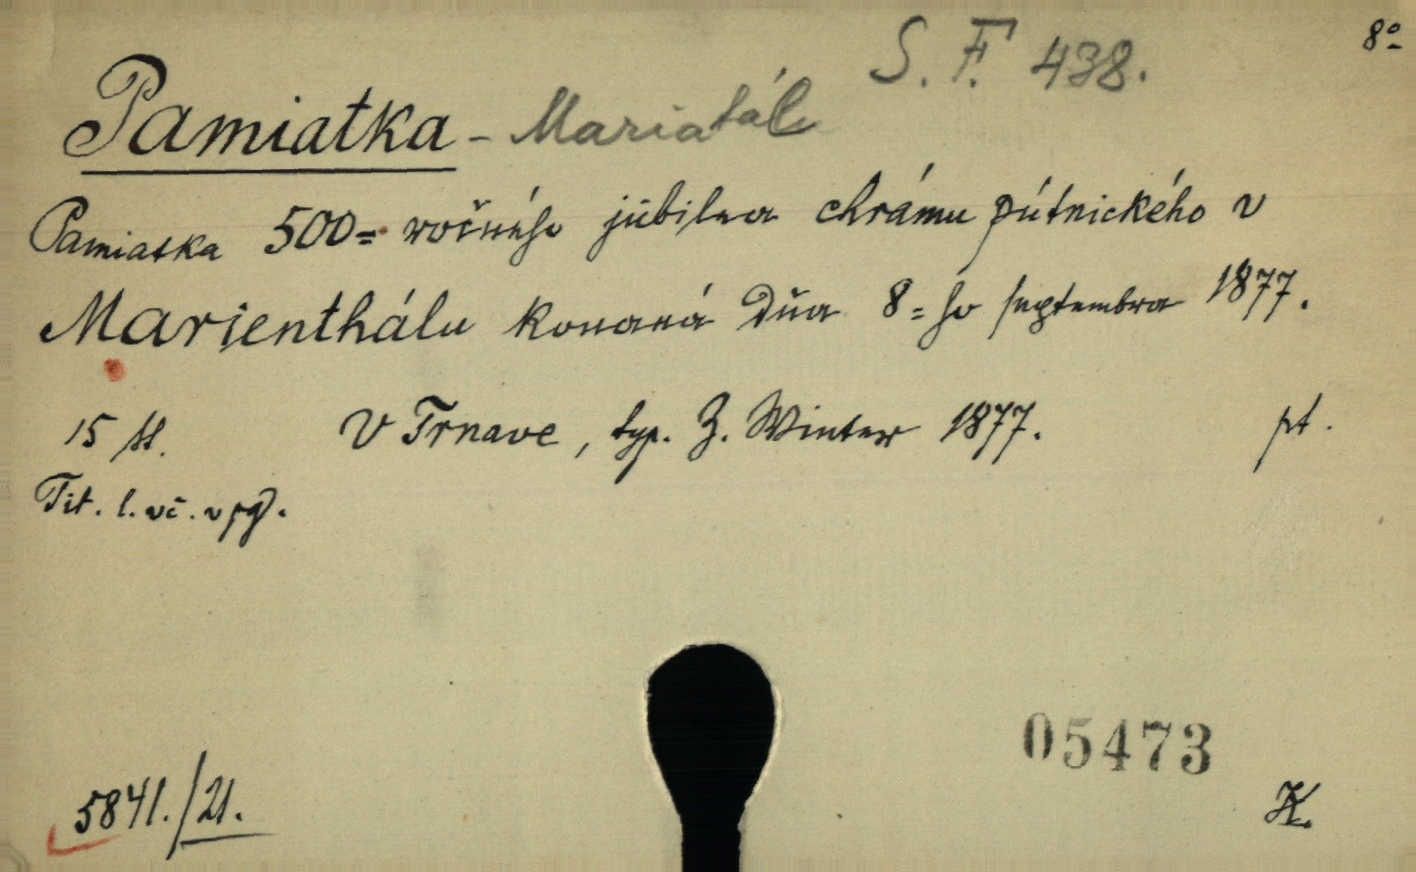 8º
S. F. 438.
Pamiatka - Mariatál
Pamiatka 500=ročného jubilea chrámu pútnického v
Marienthálu konaná dňa 8=ho septembra 1877.
15 st. V Trnave, typ. Z. Winter 1877. pt.
Tit. l. vč. v pg.
05473
5841./21. K.